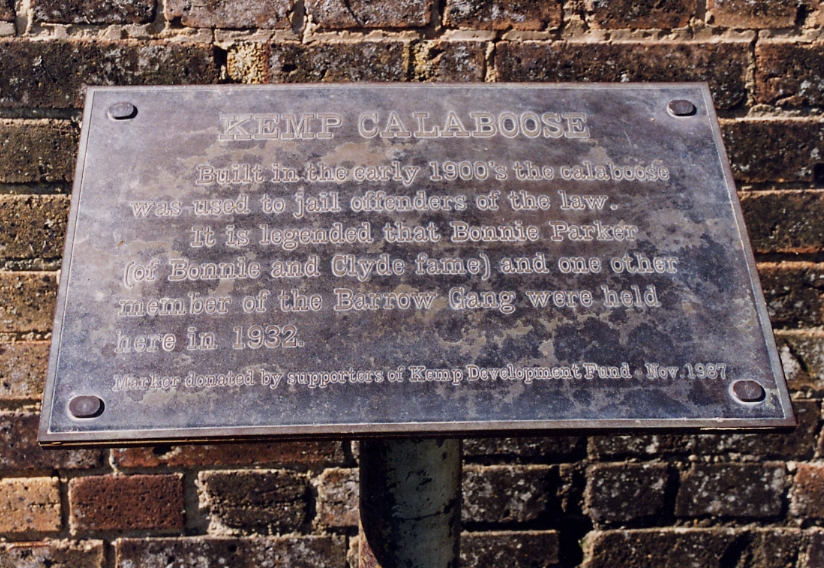 KEMP CALABOOSE
Built in the early 1900's the calaboose
was used to jail offenders of the law.
It is legended that Bonnie Parker
(of Bonnie and Clyde fame) and one other
member of the Barrow Gang were held
here in 1932.
Marker donated by supporters of Kemp Development Fund Nov. 1987